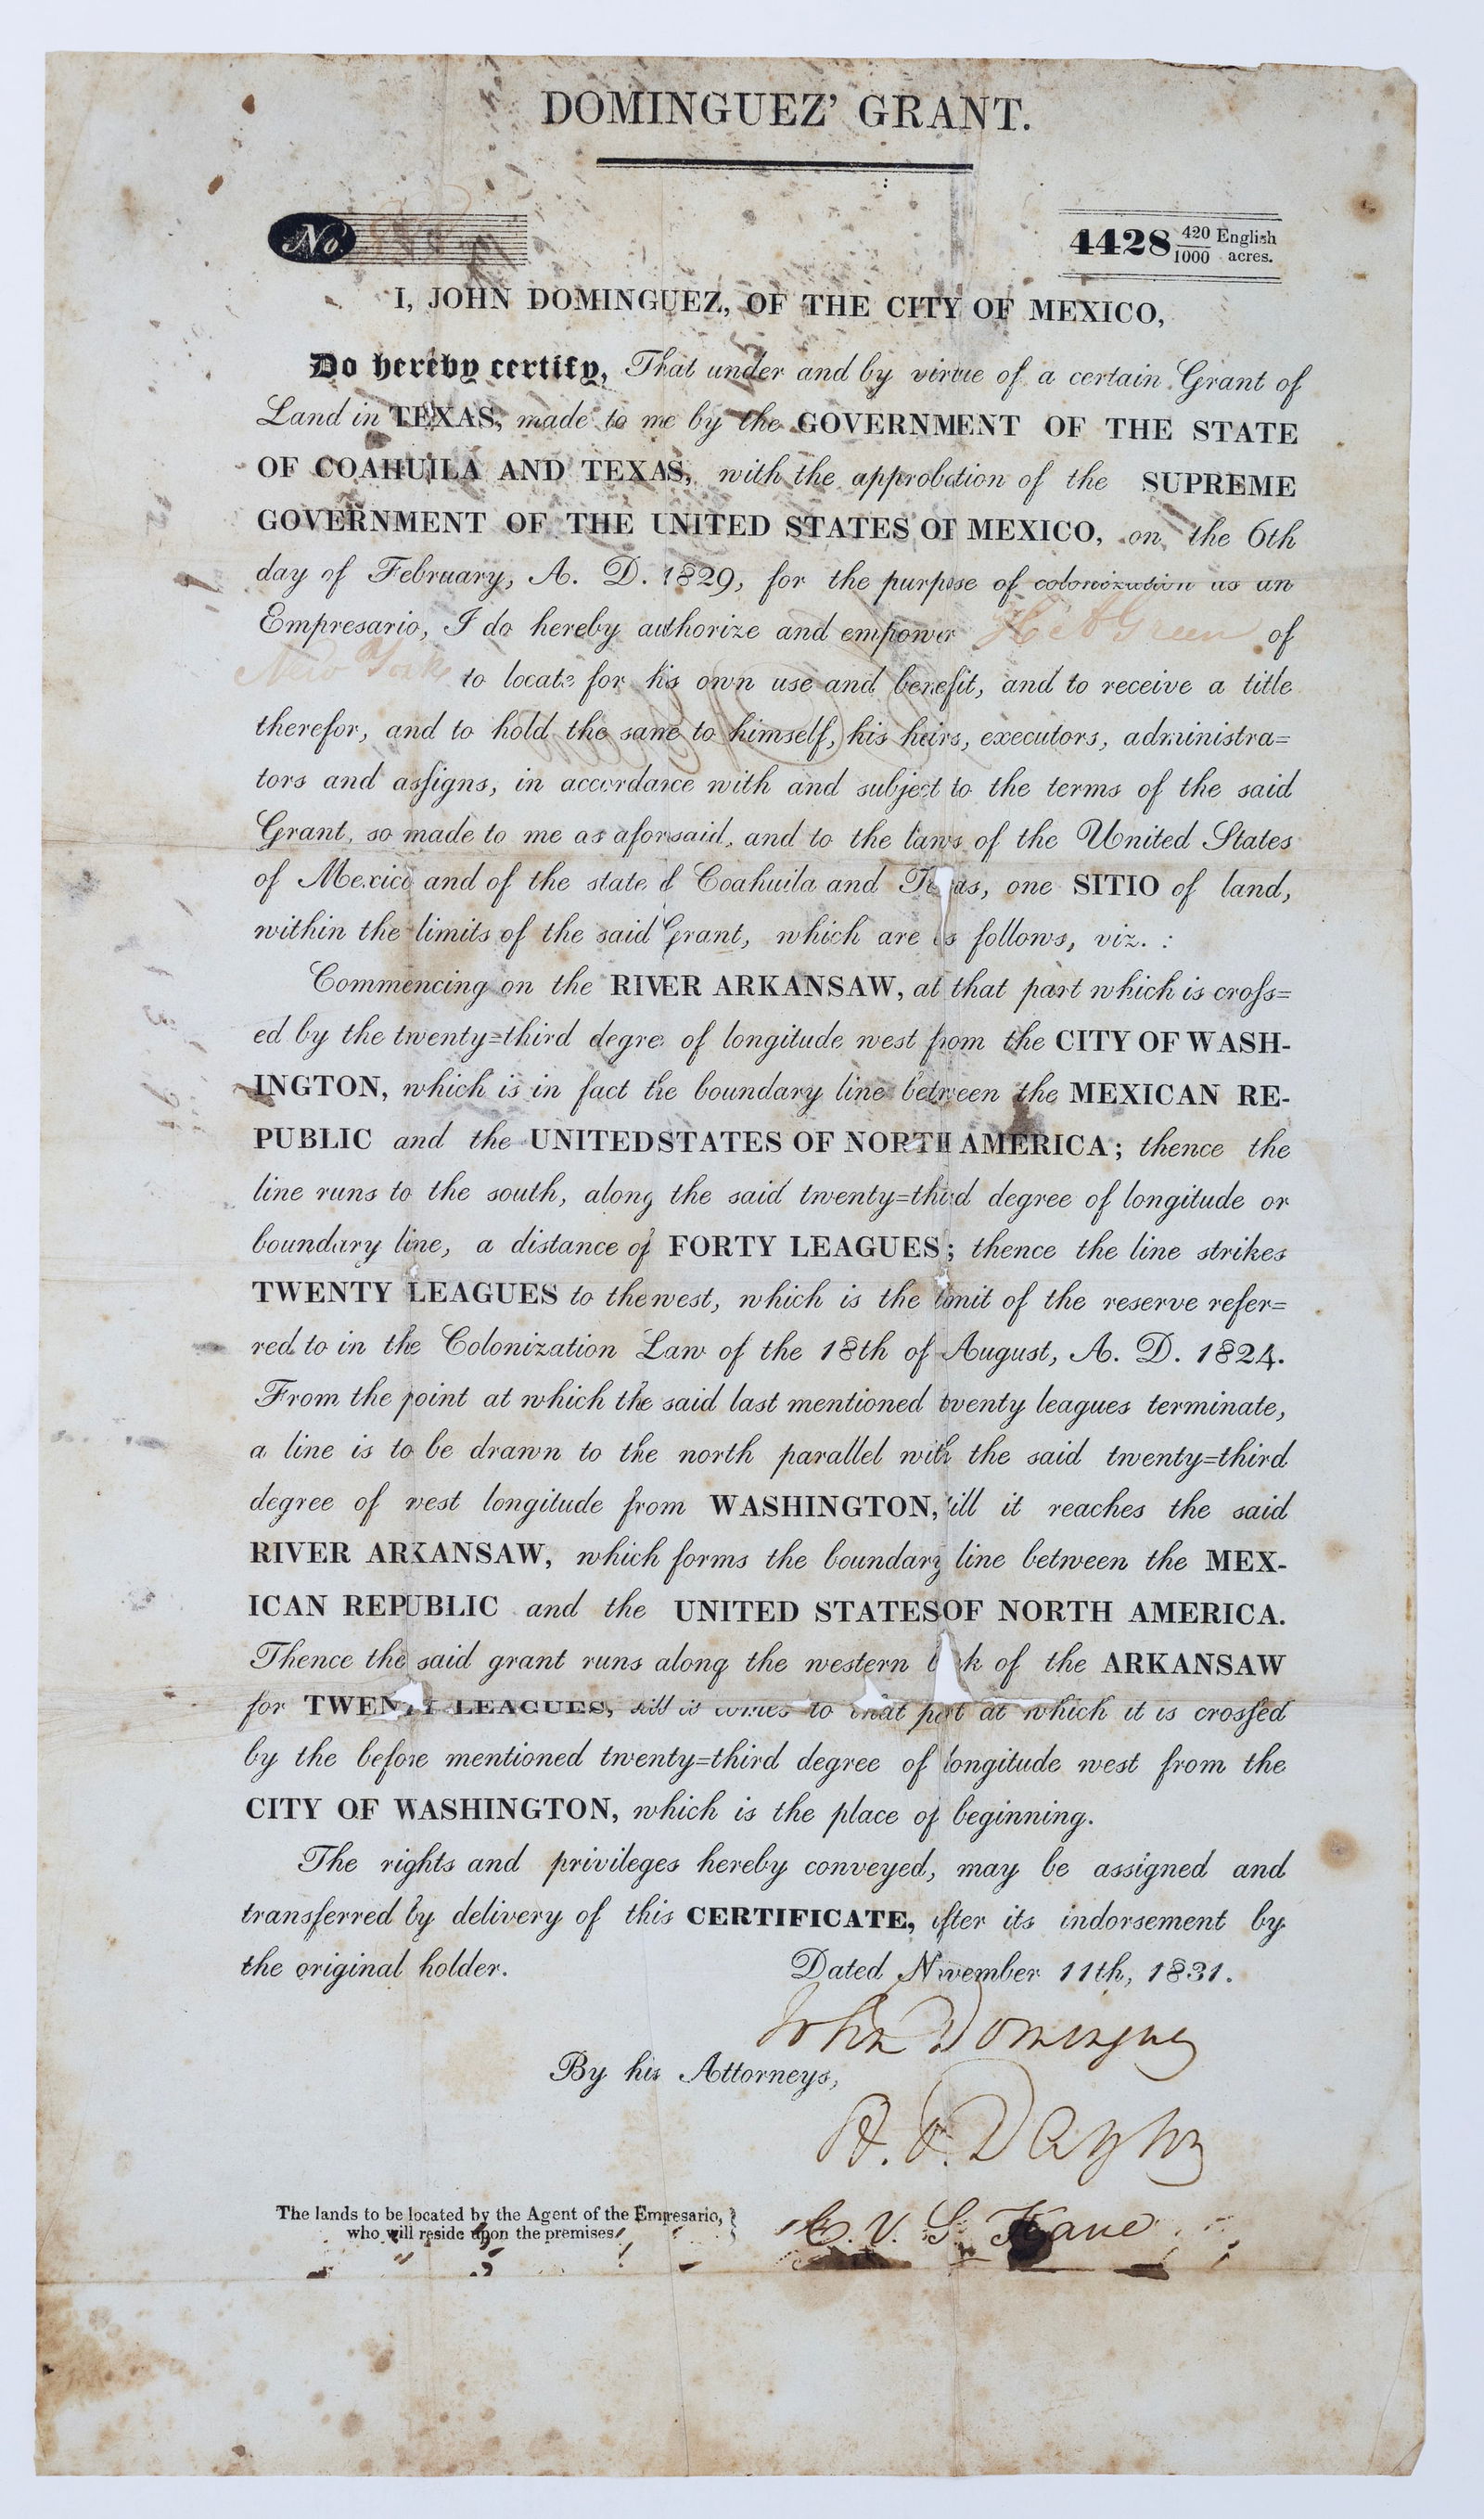 DOMINGUEZ' GRANT.
No.
4428 420/1000 English acres.
I, JOHN DOMINGUEZ, OF THE CITY OF MEXICO,
Do hereby certify, That under and by virtue of a certain Grant of
Land in TEXAS, made to me by the GOVERNMENT OF THE STATE
OF COAHUILA AND TEXAS, with the approbation of the SUPREME
GOVERNMENT OF THE UNITED STATES OF MEXICO, on the 6th
day of February, A. D. 1829, for the purpose of colonization as an
Empresario, I do hereby authorize and empower H A Green of
New York to locate for his own use and benefit, and to receive a title
therefor, and to hold the same to himself, his heirs, executors, administra=
tors and assigns, in accordance with and subject to the terms of the said
Grant, so made to me as aforsaid, and to the laws of the United States
of Mexico and of the state of Coahuila and Texas, one SITIO of land,
within the limits of the said Grant, which are as follows, viz. :
Commencing on the RIVER ARKANSAW, at that part which is cross=
ed by the twenty=third degree of longitude west from the CITY OF WASH-
INGTON, which is in fact the boundary line between the MEXICAN RE-
PUBLIC and the UNITED STATES OF NORTH AMERICA; thence the
line runs to the south, along the said twenty=third degree of longitude or
boundary line, a distance of FORTY LEAGUES; thence the line strikes
TWENTY LEAGUES to the west, which is the limit of the reserve refer=
red to in the Colonization Law of the 18th of August, A. D. 1824.
From the point at which the said last mentioned twenty leagues terminate,
a line is to be drawn to the north parallel with the said twenty=third
degree of west longitude from WASHINGTON, till it reaches the said
RIVER ARKANSAW, which forms the boundary line between the MEX-
ICAN REPUBLIC and the UNITED STATES OF NORTH AMERICA.
Thence the said grant runs along the western bank of the ARKANSAW
for TWENTY LEAGUES, till it comes to that part at which it is crossed
by the before mentioned twenty=third degree of longitude west from the
CITY OF WASHINGTON, which is the place of beginning.
The rights and privileges hereby conveyed, may be assigned and
transferred by delivery of this CERTIFICATE, after its indorsement by
the original holder. Dated November 11th, 1831.
John Dominguez
By his Attorneys,
C. V. S. Kane
The lands to be located by the Agent of the Empresario,
who will reside upon the premises.